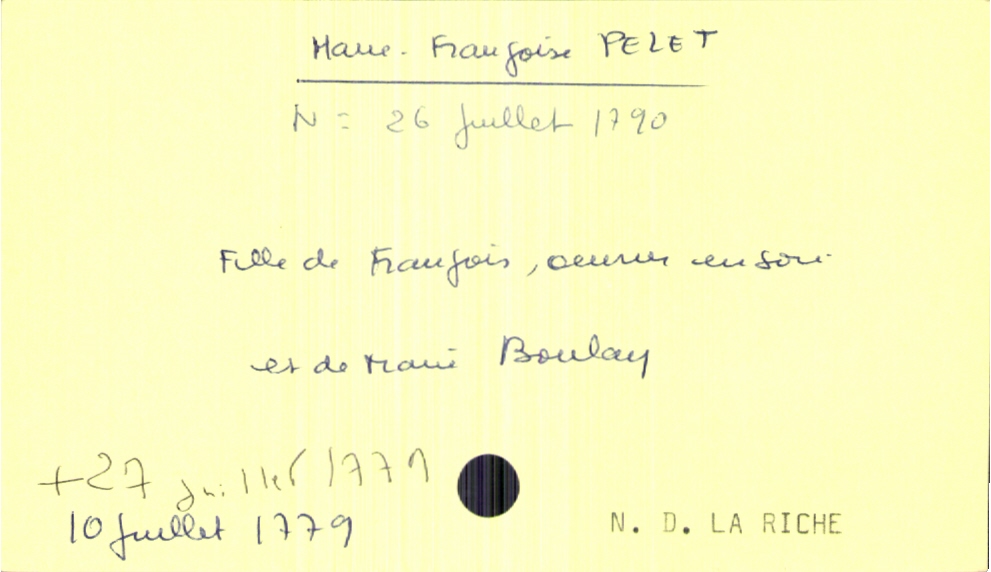 Marie-Françoise PELET
N = 26 juillet 1790
Fille de François, ouvrier en soie
et de Marie Boulay
+27 juillet 1779
10 juillet 1779
N. D. LA RICHE